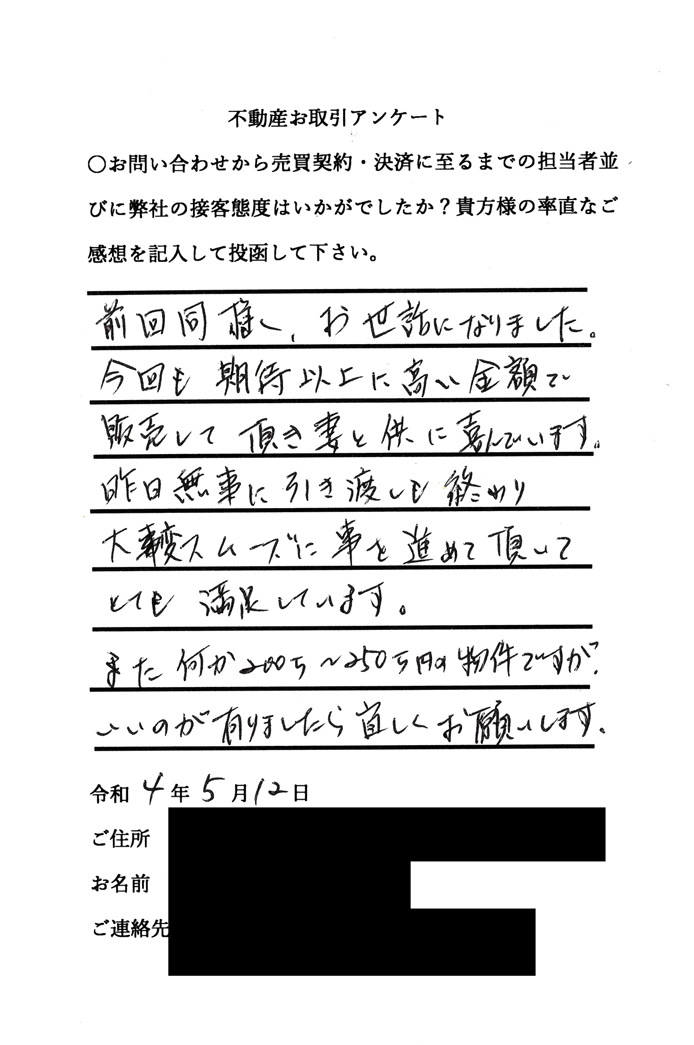 不動産お取引アンケート
〇お問い合わせから売買契約・決済に至るまでの担当者並
びに弊社の接客態度はいかがでしたか？貴方様の率直なご
感想を記入して投函して下さい。
前回同様、お世話になりました。
今回も期待以上に高い金額で
販売して頂き妻と供に喜んでいます。
昨日無事に引き渡しも終わり
大変スムーズに事を進めて頂いて
とても満足しています。
また何か200万～250万円の物件ですが、
いいのが有りましたら宜しくお願いします。
令和 4 年 5 月 12 日
ご住所
お名前
ご連絡先